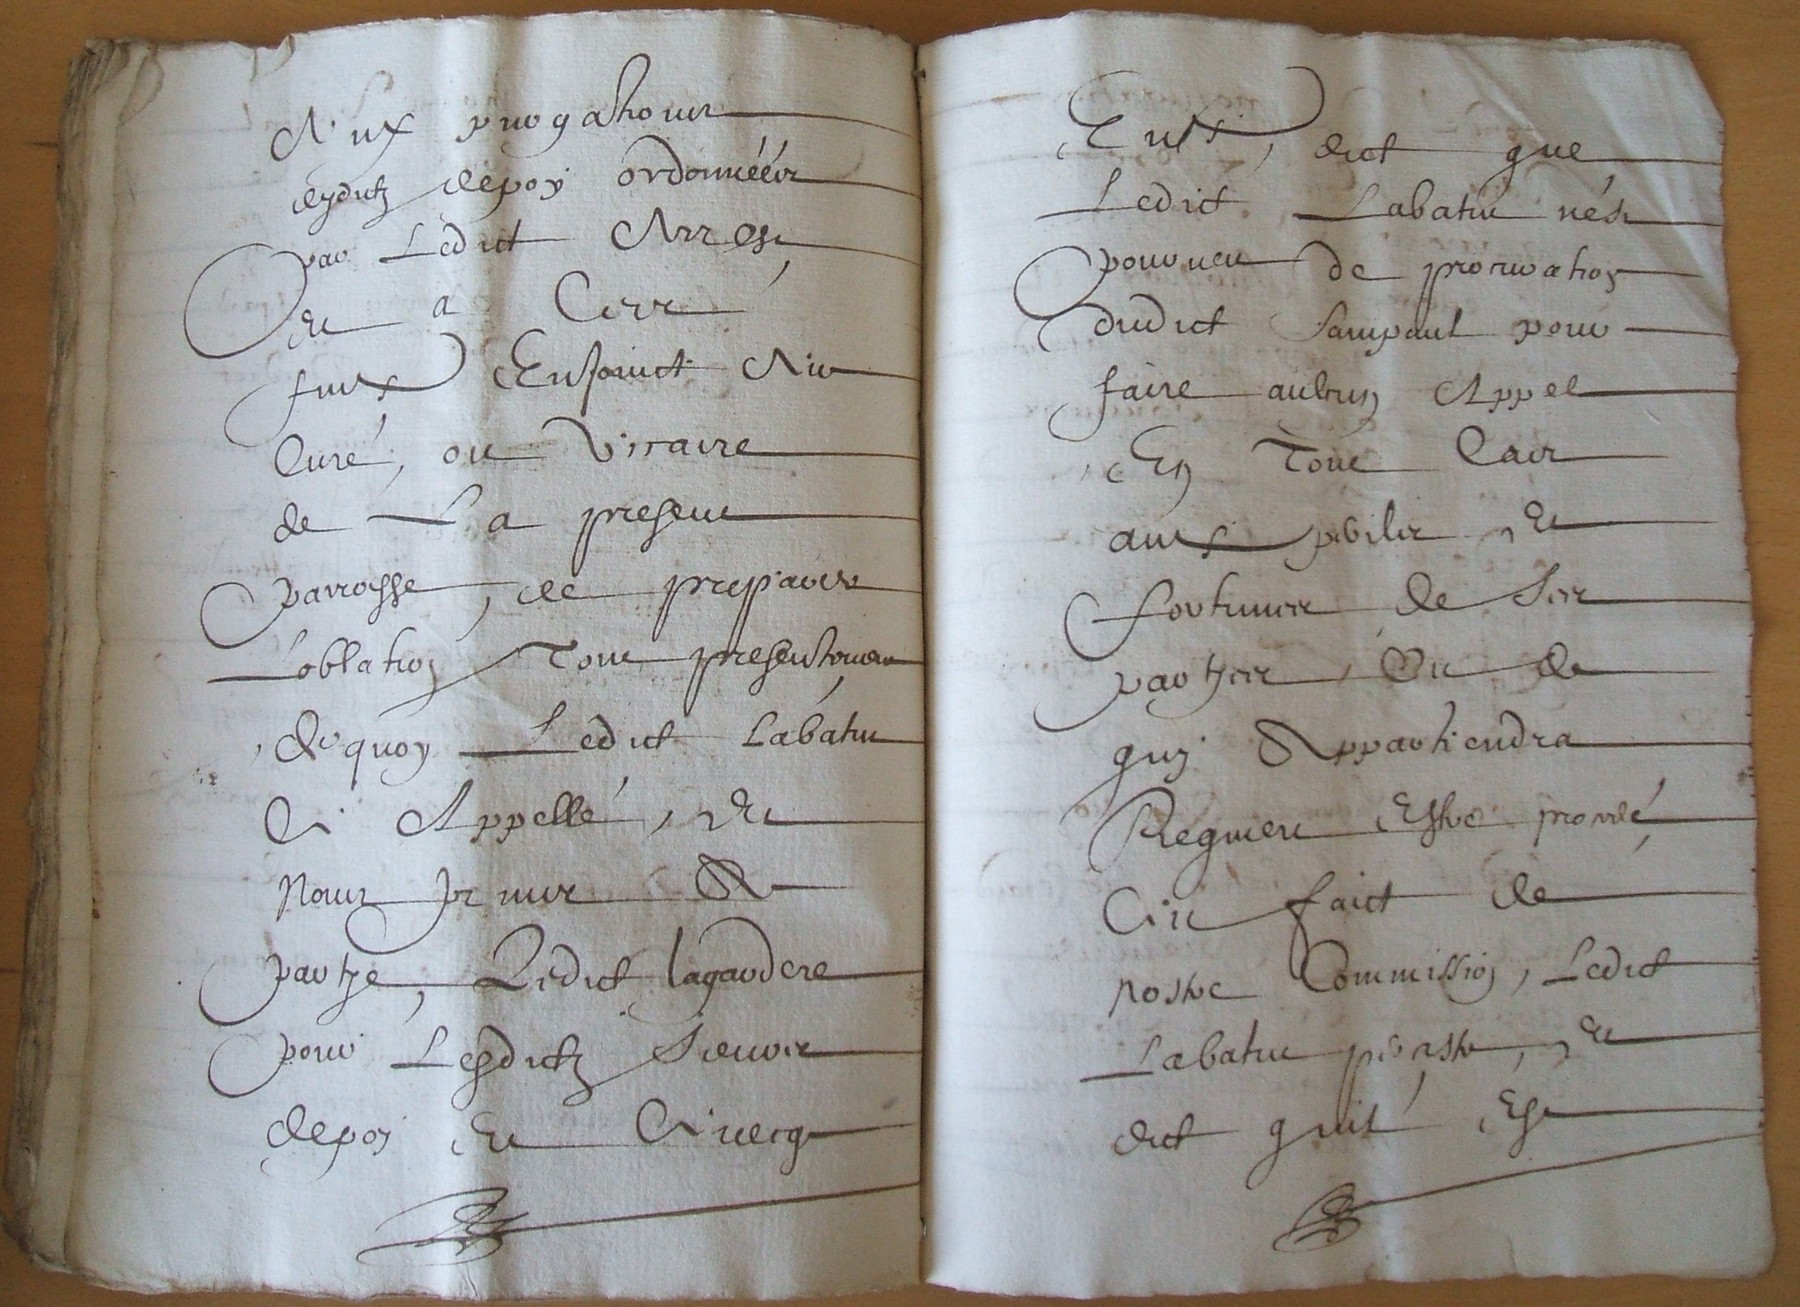 Aux prorogations
desdictz depoy ordonnéés
par Ledict Arrest
et a Ces
fins Enjoinct Au
Curé, ou Vicaire
de La present
parroisse, de preparer
Loblation Tout presentement
dequoy Ledict Labatut
A Appellé, et
Nous a
partye, Ledict lagardere
pour Lesdictz Sieurs
depoy et Avecq
Eux, dict que
Ledict Labatut nést
pourveu de procuration
dudict Sainpaul pour
faire aulcun Appel
En Tout Cas
aux perilz et
fortunes de Ses
partyes, Ou de
quy Appartiendra
Requiert Estre procédé
Au faict de
nostre Commission, Ledict
Labatut persiste, et
dict quil Est